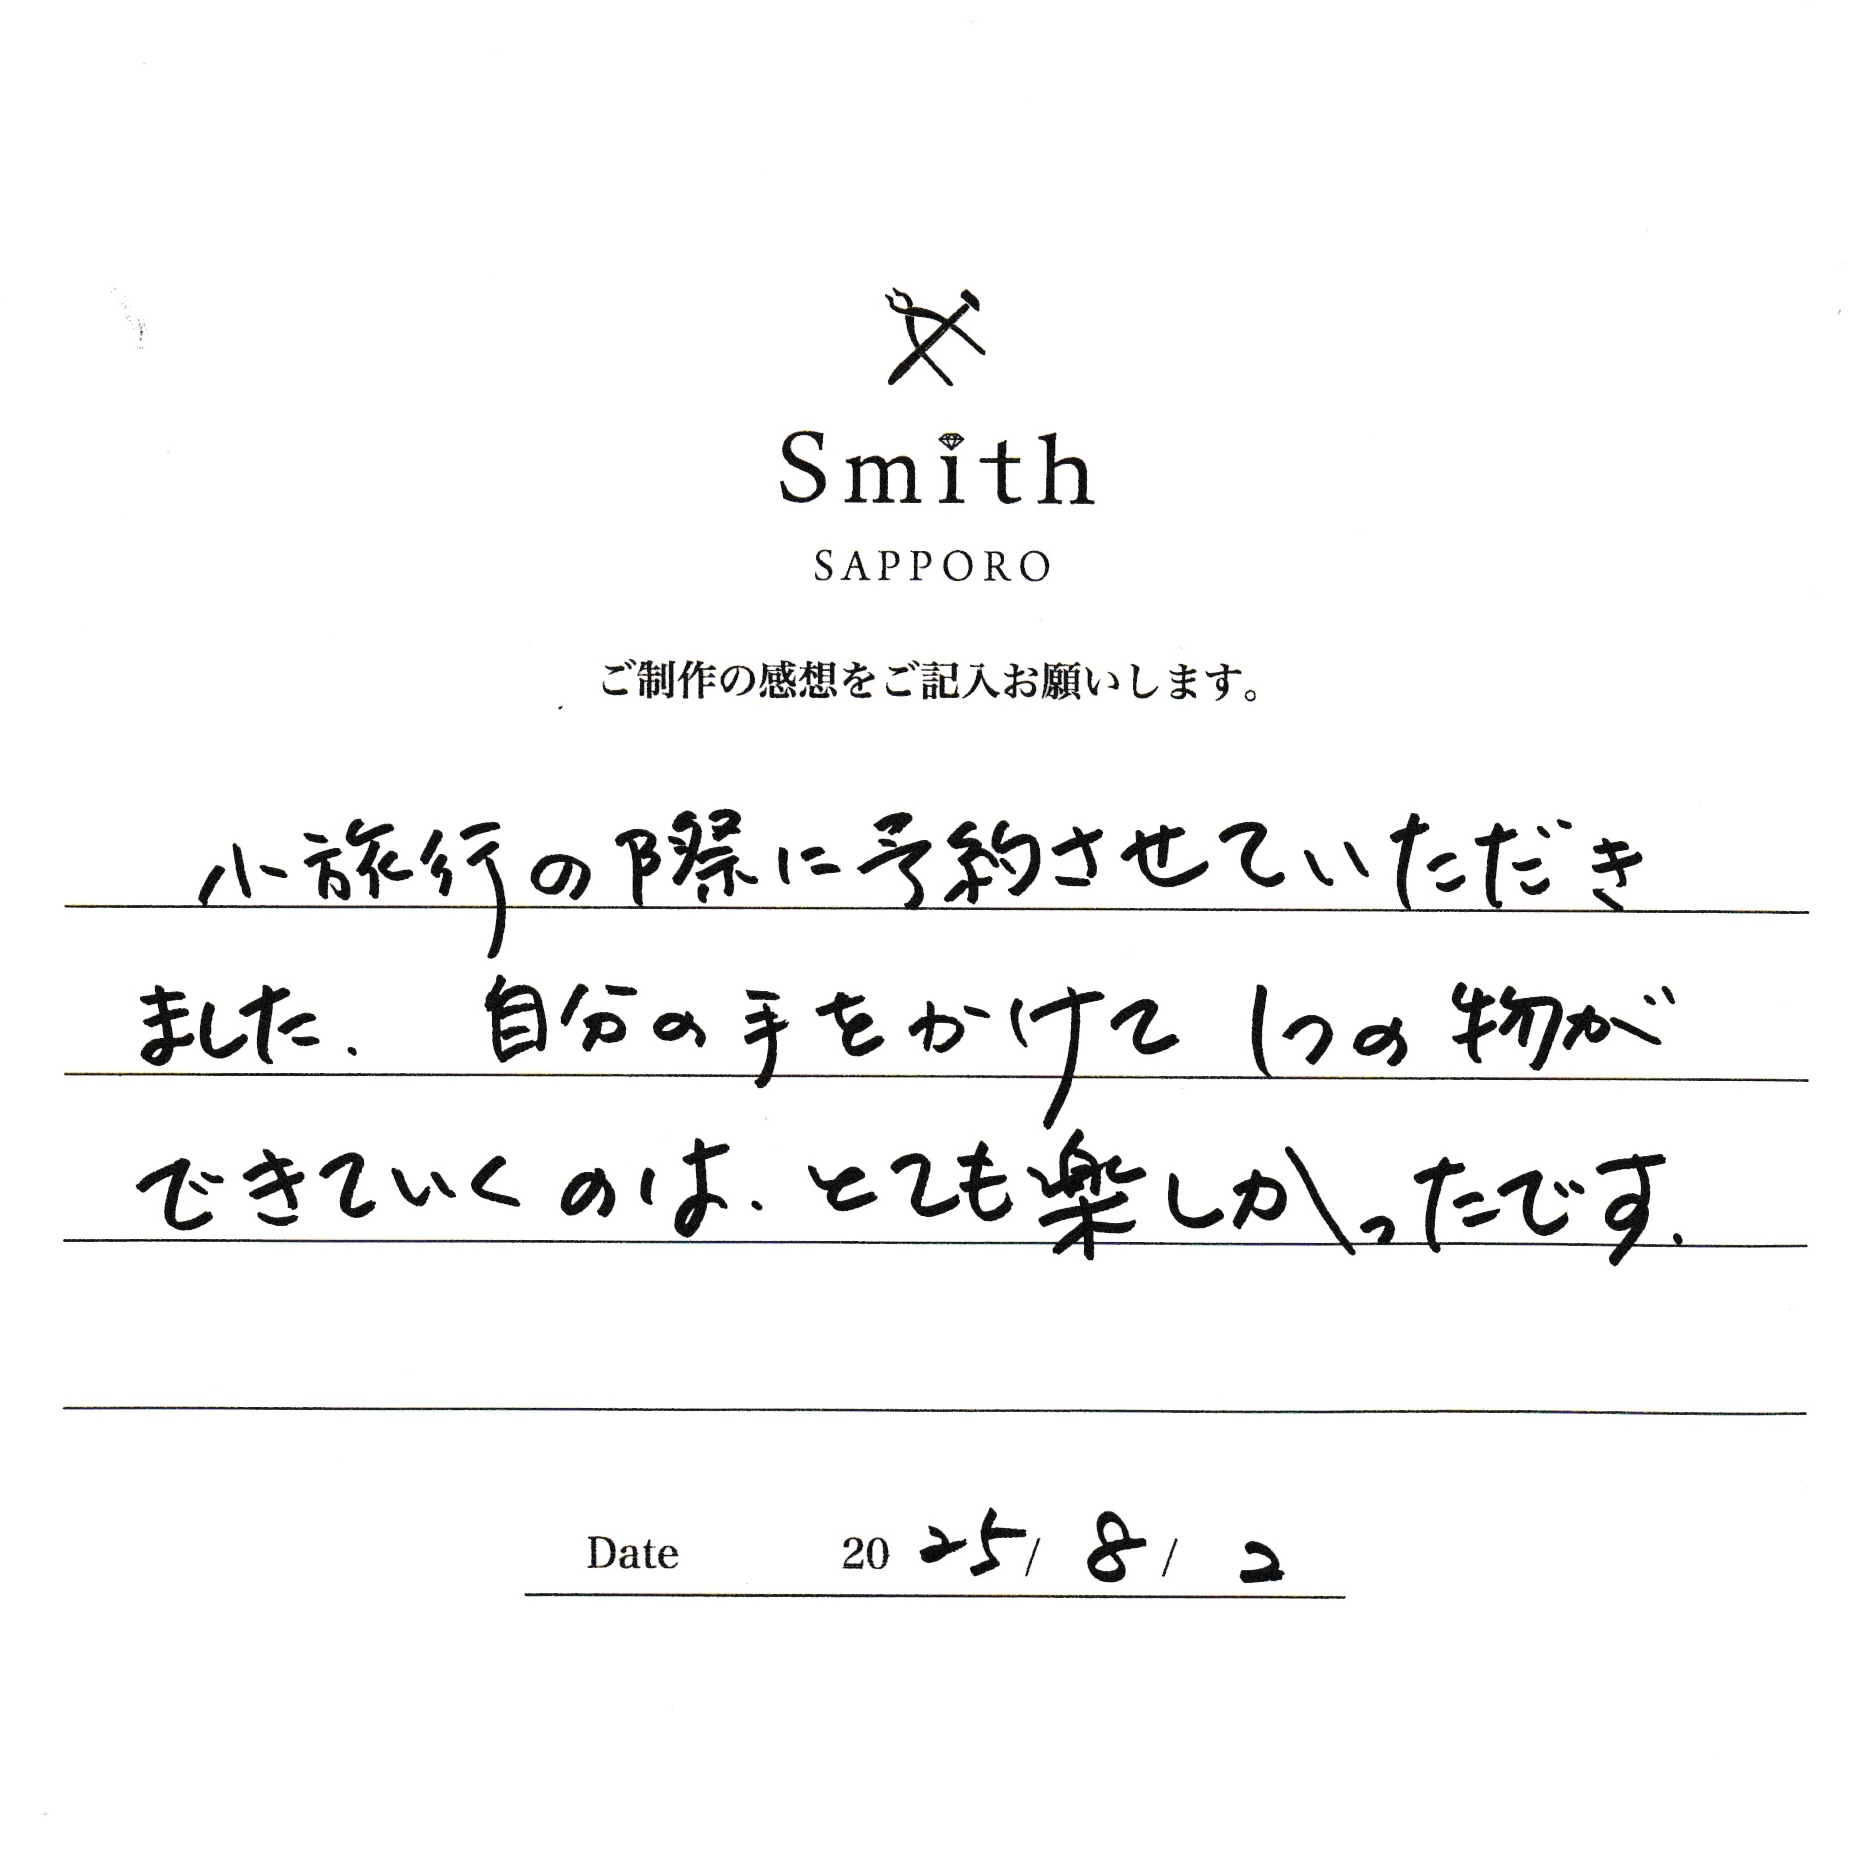 Smith
SAPPORO
ご制作の感想をご記入お願いします。
小旅行の際に予約させていただき
ました. 自分の手をかけて 1つの物が
できていくのは. とても楽しかったです.
Date 2025/ 8 / 2